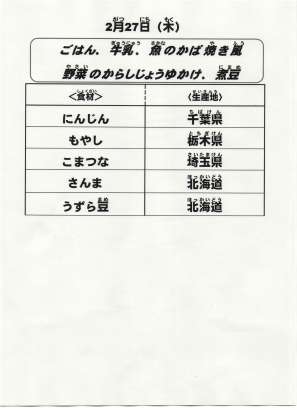 2月27日（木）
ごはん．牛乳．魚のかば焼き風
野菜のからしじょうゆかけ．煮豆
＜食材＞ 〈生産地〉
にんじん 千葉県
もやし 栃木県
こまつな 埼玉県
さんま 北海道
うずら豆 北海道